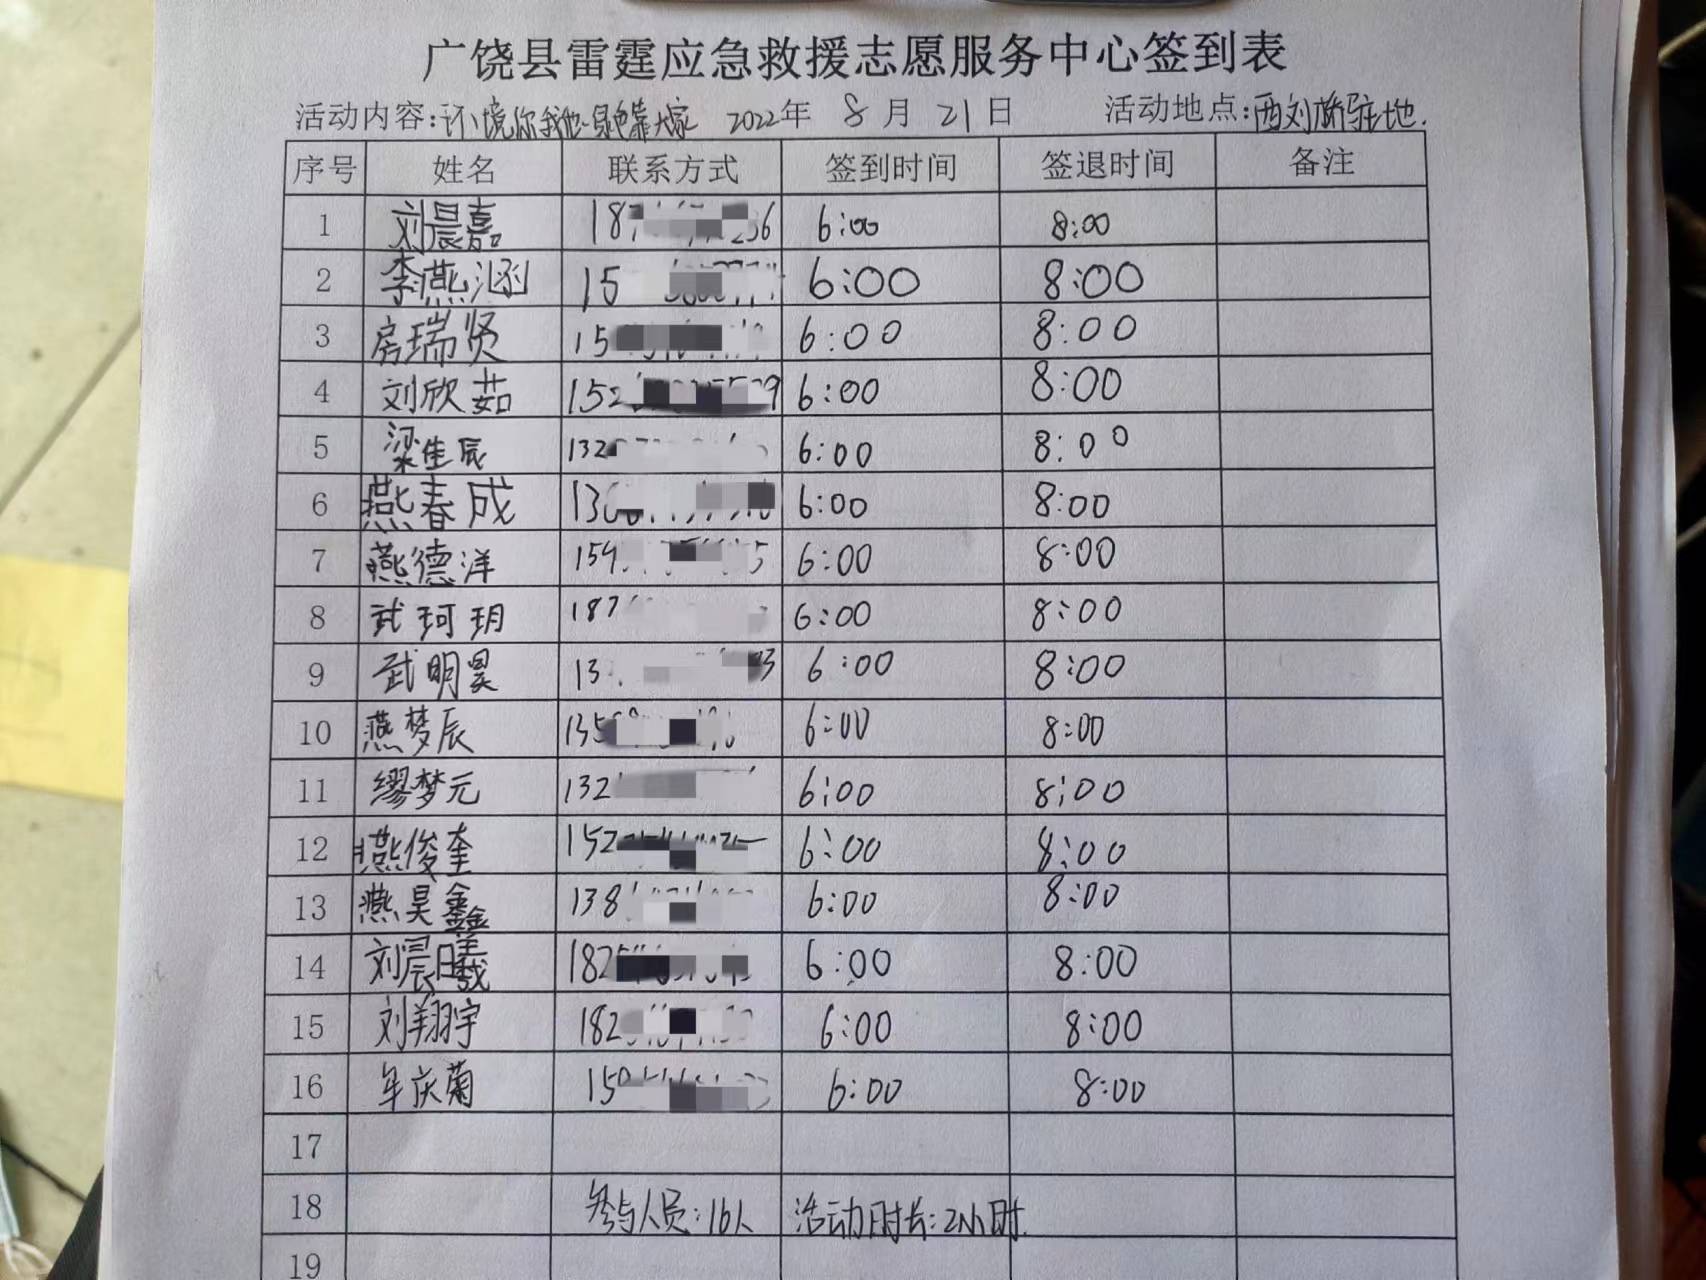 广饶县雷霆应急救援志愿服务中心签到表
活动内容:环境你我他 绿色靠大家 2022年 8月21日 活动地点:西刘桥驻地.
序号 姓名 联系方式 签到时间 签退时间 备注
1 刘晨嘉 187 236 6:00 8:00
2 李燕涵 15 6:00 8:00
3 房瑞贤 15 6:00 8:00
4 刘欣茹 152 9 6:00 8:00
5 梁佳辰 132 6:00 8:00
6 燕春成 136 6:00 8:00
7 燕德洋 159 5 6:00 8:00
8 武珂玥 187 6:00 8:00
9 武明昊 13 3 6:00 8:00
10 燕梦辰 135 6:00 8:00
11 缪梦元 132 6:00 8:00
12 燕俊奎 152 6:00 8:00
13 燕昊鑫 138 6:00 8:00
14 刘晨曦 182 6:00 8:00
15 刘翔宇 182 6:00 8:00
16 年庆菊 15 6:00 8:00
17
18 参与人员:16人 活动时长:2小时.
19